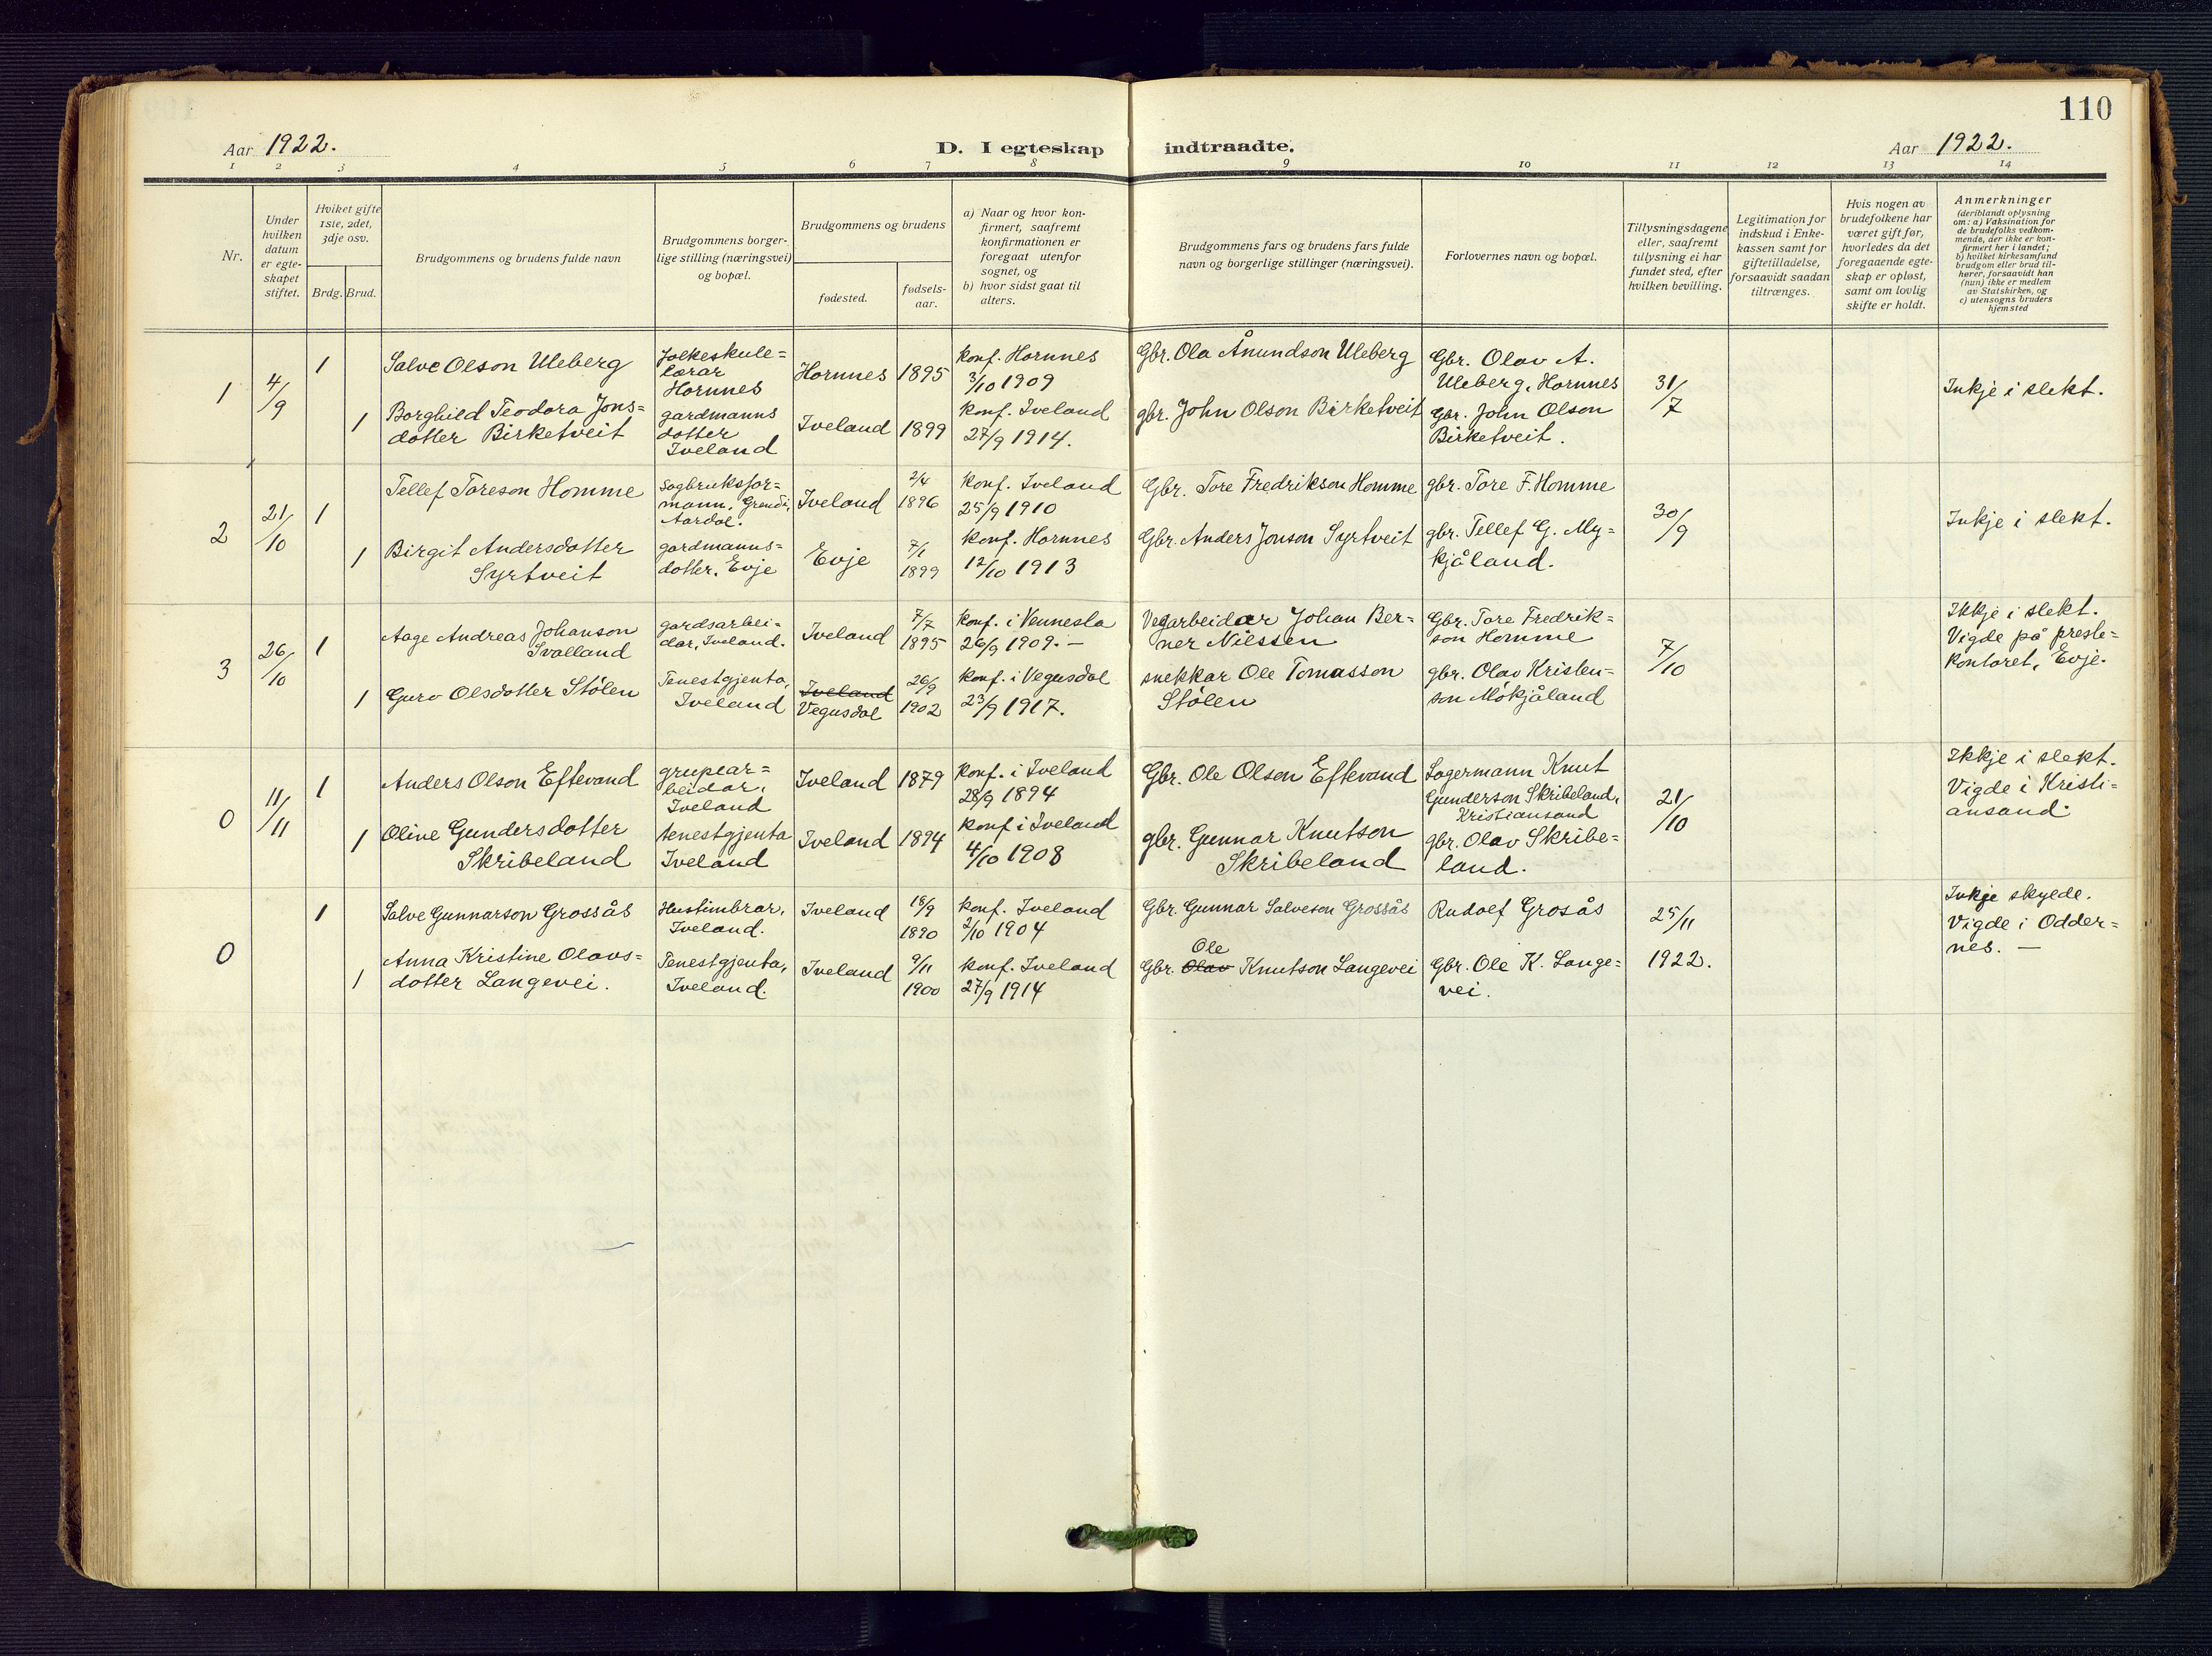 110
Aar 1922.
D. I egteskap indtraadte.
Aar 1922.
1 2 3 4 5 6 7 8 9 10 11 12 13 14
Nr.
Under
hvilken
datum
er egte-
skapet
stiftet.
Hviket gifte
1ste, 2det,
3dje osv.
Brdg. Brud.
Brudgommens og brudens fulde navn
Brudgommens borger-
lige stilling (næringsvei)
og bopæl.
Brudgommens og brudens
fødested.
fødsels-
aar.
a) Naar og hvor kon-
firmert, saafremt
konfirmationen er
foregaat utenfor
sognet, og
b) hvor sidst gaat til
alters.
Brudgommens fars og brudens fars fulde
navn og borgerlige stillinger (næringsvei).
Forlovernes navn og bopæl.
Tillysningsdagene
eller, saafremt
tillysning ei har
fundet sted, efter
hvilken bevilling.
Legitimation for
indskud i Enke-
kassen samt for
giftetilladelse,
forsaavidt saadan
tiltrænges.
Hvis nogen av
brudefolkene har
været gift før,
hvorledes da det
foregaaende egte-
skap er opløst,
samt om lovlig
skifte er holdt.
Anmerkninger
(deriblandt oplysning
om: a) Vaksination for
de brudefolks vedkom-
mende, der ikke er kon-
firmert her i landet;
b) hvilket kirkesamfund
brudgom eller brud til-
hører, forsaavidt han
(hun) ikke er medlem
av Statskirken, og
c) utensogns bruders
hjemsted
1
4/9
1
Salve Olson Uleberg
Folkeskule=
lærar
Hornnes
Hornnes
1895
Konf. Hornnes
3/10 1909
Gbr. Ola Ånundson Uleberg
Gbr. Olav A.
Uleberg, Hornnes
31/7
Inkje i slekt.
1
Borghild Teodora Jons=
dotter Birketveit
gardmanns
dotter
Iveland
Iveland
1899
Konf. Iveland
27/9 1914.
gbr. John Olson Birketveit
Gbr. John Olson
Birketveit.
2
21/10
1
Tellef Toreson Homme
Sagbruksfor=
mann, Grendi,
Aardal.
Iveland
2/4
1896
Konf. Iveland
25/9 1910
Gbr. Tore Fredrikson Homme
gbr. Tore F. Homme
30/9
Inkje i slekt.
1
Birgit Andersdotter
Syrtveit
gardmanns=
dotter, Evje
Evje
7/1
1899
Konf. Hornnes
12/10 1913
Gbr. Anders Jonson Syrtveit
gbr. Tellef G. My=
kjåland.
3
26/10
1
Aage Andreas Johanson
Svalland
gardsarbei=
dar, Iveland.
Iveland
7/7
1895
Konf. i Vennesla
26/9 1909. —
Vegarbeidar Johan Ber=
ner Nilssen
Gbr. Tore Fredrik=
son Homme
7/10
Ikkje i slekt.
Vigde på preste=
kontoret, Evje.
1
Guro Olsdotter Stölen
Tenestgjenta,
Iveland
Iveland
Vegusdal
26/9
1902
Konf. i Vegusdal
23/9 1917.
snekkar Ole Tomasson
Stölen
gbr. Olav Kristen=
son Mökjåland
0
11/11
1
Anders Olson Eftevand
grupear=
beidar,
Iveland
Iveland
1879
Konf. i Iveland
28/9 1894
Gbr. Ole Olson Eftevand
Lagermann Knut
Gunderson Skribeland,
Kristiansand
21/10
Ikkje i slekt.
Vigde i Kristi=
ansand
1
Oline Gundersdotter
Skribeland
tenestgjenta
Iveland
Iveland
1894
Konf i Iveland
4/10 1908
gbr. Gunnar Knutson
Skribeland
gbr. Olav Skribe=
land.
0
1
Salve Gunnarson Grossås
Hustimbrar,
Iveland.
Iveland
18/9
1890
Konf. Iveland
2/10 1904
Gbr. Gunnar Salveson Grossås
Rudolf Grosås
25/11
1922.
Inkje skylde.
Vigde i Odder=
nes. —
1
Anna Kristine Olavs=
dotter Langevei.
Tenestgjenta,
Iveland.
Iveland
9/11
1900
Konf. Iveland
27/9 1914
Ole
Gbr. Olav Knutson Langevei
Gbr. Ole K. Lange=
vei.